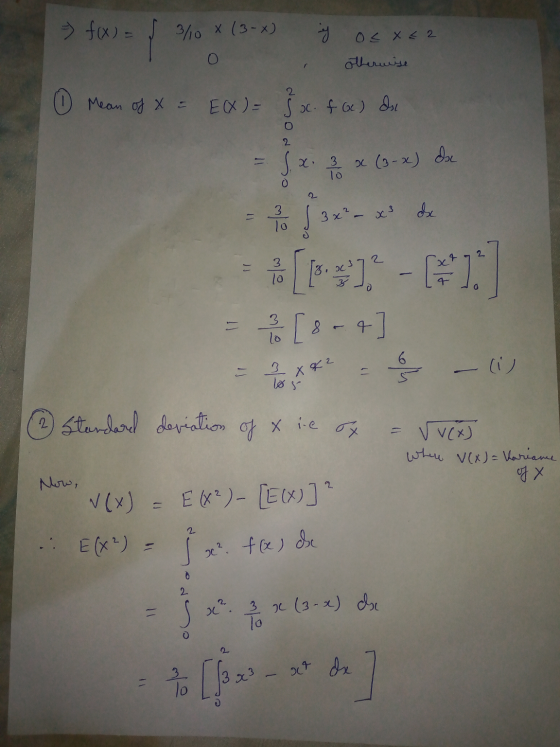 ⇒ f(x) = { 3/10 x (3-x) if 0 ≤ x ≤ 2
0 , otherwise
① Mean of X = E(X) = ∫₀² x. f(x) dx
= ∫₀² x. 3/10 x (3-x) dx
= 3/10 ∫₀² 3x² - x³ dx
= 3/10 [ [3. x³/3]₀² - [x⁴/4]₀² ]
= 3/10 [ 8 - 4 ]
= 3/10 5 x 4 2 = 6/5 — (i)
② Standard deviation of X i.e σx = √V(X)
Where V(X) = Variance
of X
Now,
V(X) = E(X²) - [E(X)]²
∴ E(X²) = ∫₀² x². f(x) dx
= ∫₀² x². 3/10 x (3-x) dx
= 3/10 [ ∫₀² 3x³ - x⁴ dx ]